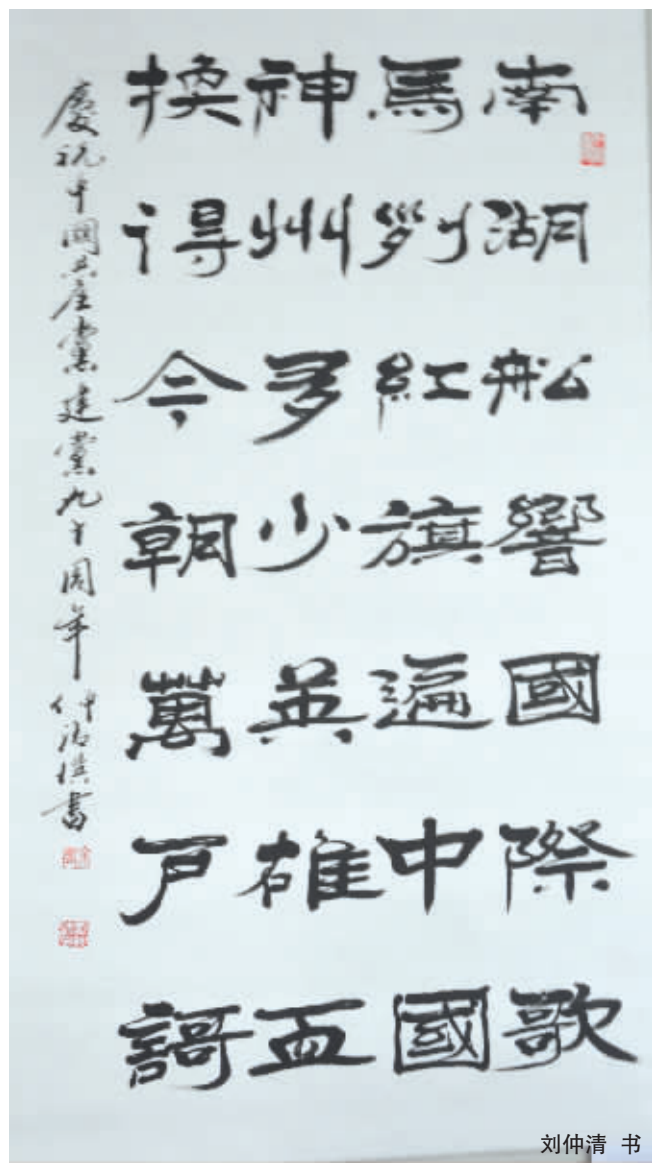 南湖舩響國際歌
馬列紅旗遍中國
神州多少英雄血
換得今朝萬戶謌
慶祝中國共產黨建黨九十周年 仲清撰書
刘仲清 书